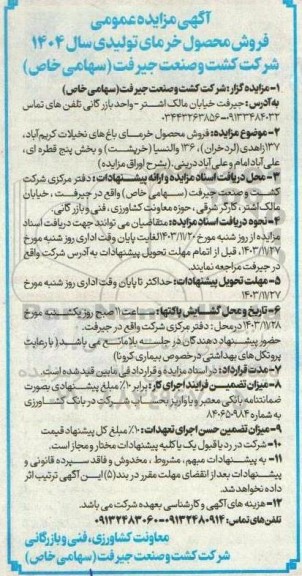 آگهی مزایده عمومی
فروش محصول خرمای تولیدی سال ۱۴۰۴
شرکت کشت و صنعت جیرفت (سهامی خاص)
۱- مزایده گزار: شرکت کشت و صنعت جیرفت (سهامی خاص)
به آدرس: جیرفت خیابان مالک اشتر - واحد بازرگانی تلفن های تماس
۰۹۱۳۳۴۸۴۰۳۲-۰۳۴۴۳۲۶۳۸۵۶
۲- موضوع مزایده: فروش محصول خرمای باغ های نخیلات کریم آباد،
۱۳۷ زاهدی (لردخزان)، ۱۳۶ والنسیا (خریشت) و بخش پنج قطره ای،
علی آباد امام و علی آباد دریتی. (بشرح اوراق مزایده)
۳- محل دریافت اسناد مزایده و ارائه پیشنهادات: دفتر مرکزی شرکت
کشت و صنعت جیرفت (سهامی خاص) واقع در جیرفت، خیابان
مالک اشتر، کارگر شرقی، حوزه معاونت کشاورزی، فنی و بازرگانی
۴- نحوه دریافت اسناد مزایده: متقاضیان می توانند جهت دریافت اسناد
مزایده از روز شنبه مورخ ۱۴۰۳/۱۱/۲۰ لغایت پایان وقت اداری روز شنبه مورخ
۱۴۰۳/۱۱/۲۷، قبل از اتمام مهلت تحویل پیشنهادات به آدرس شرکت واقع
در جیرفت مراجعه نمایند.
۵- مهلت تحویل پیشنهادات: حداکثر تا پایان وقت اداری روز شنبه مورخ
۱۴۰۳/۱۱/۲۷
۶- تاریخ و محل گشایش پاکتها: ساعت ۱۱ صبح روز یکشنبه مورخ
۱۴۰۳/۱۱/۲۸ در محل: دفتر مرکزی شرکت واقع در جیرفت.
حضور پیشنهاد دهندگان در جلسه بلامانع می باشد (با رعایت
پروتکل های بهداشتی درخصوص بیماری کرونا)
۷- مدت قرارداد: در اسناد مزایده و قرارداد فی مابین قید شده است.
۸- میزان تضمین فرایند اجرای کار: برابر ۱۰٪ مبلغ پیشنهادی بصورت
ضمانتنامه بانکی معتبر و یا واریز بحساب شرکت در بانک کشاورزی
به شماره ۸۴۰۶۵۹۸۴
۹- میزان تضمین حسن اجرای تعهدات: ۱۰٪ مبلغ کل پیشنهاد قیمت
۱۰- شرکت در رد یا قبول یک یا کلیه پیشنهادات مختار و مجاز است.
۱۱- به پیشنهادات مبهم، مشروط، مخدوش و فاقد سپرده قانونی و
پیشنهادات بعد از انقضای مهلت مقرر در بند (۵) این آگهی ترتیب اثر
داده نخواهد شد.
۱۲- هزینه های آگهی و کارشناسی بعهده شرکت می باشد.
تلفن های تماس: ۰۹۱۳۲۴۸۰۹۱۴-۰۹۱۳۲۴۸۳۰۶۰
معاونت کشاورزی، فنی و بازرگانی
شرکت کشت و صنعت جیرفت (سهامی خاص)